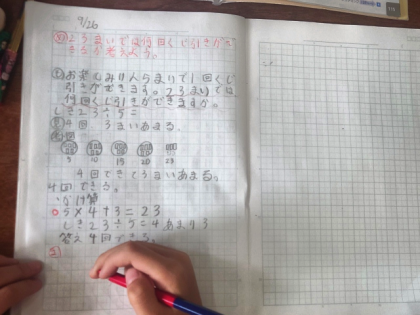 9/26
23まいでは何回くじ引きがで
きるか考えよう。
お楽しみけんらまいで1回くじ
引きができます。23まいでは
何回くじ引きができますか。
しき23÷5=
4回 3まいあまる。
5 10 15 20 23
4回できて3まいあまる。
4回できる。
かけ算
5×4+3=23
しき23÷5=4あまり3
答え4回できる。